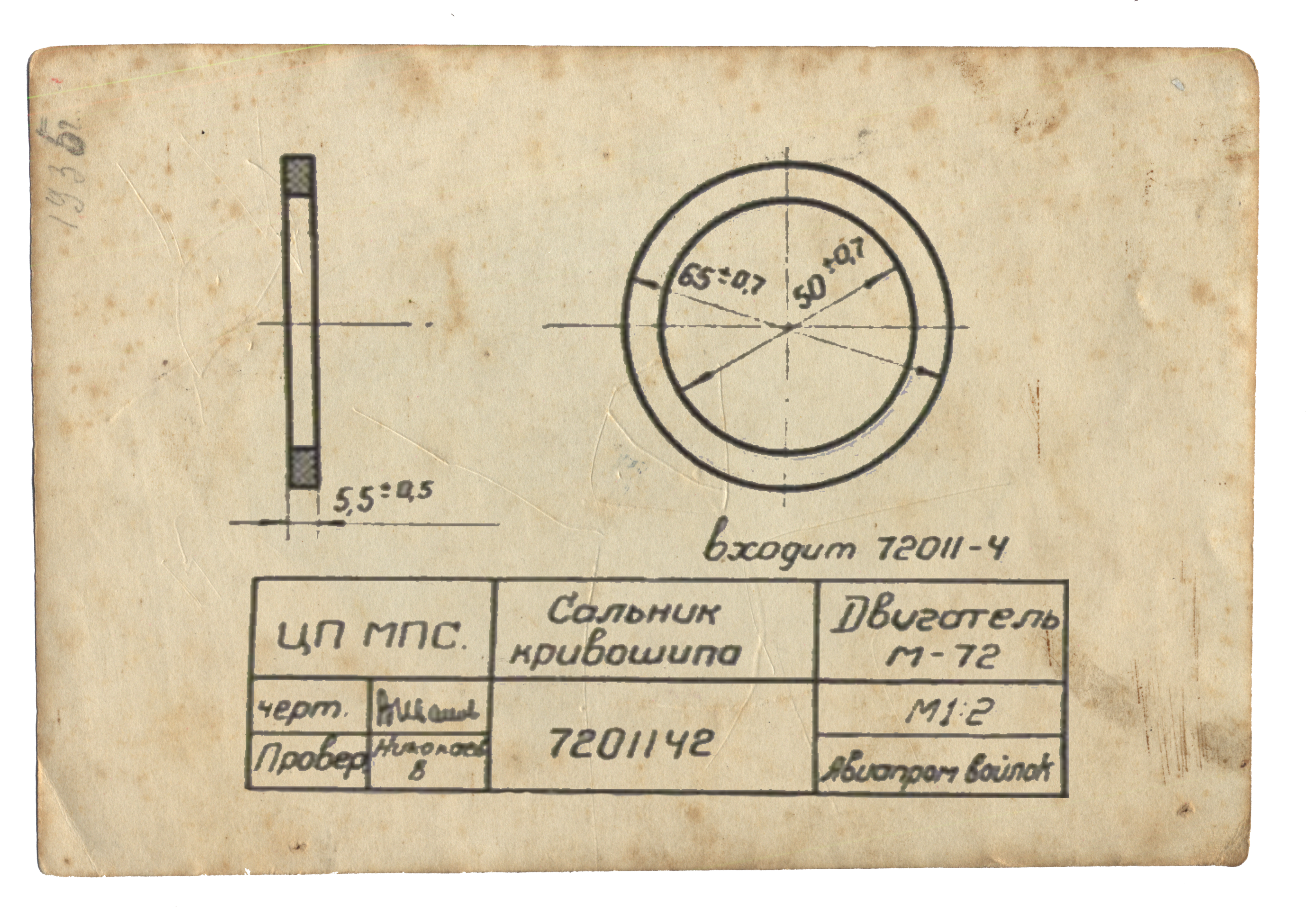 193 г.
65±0,7
50±0,7
5,5±0,5
входит 72011-4
ЦП МПС.
Сальник
кривошипа
Двигатель
М-72
черт.
М1:2
Провер.
Николаев
В
7201142
Авиапром войлок